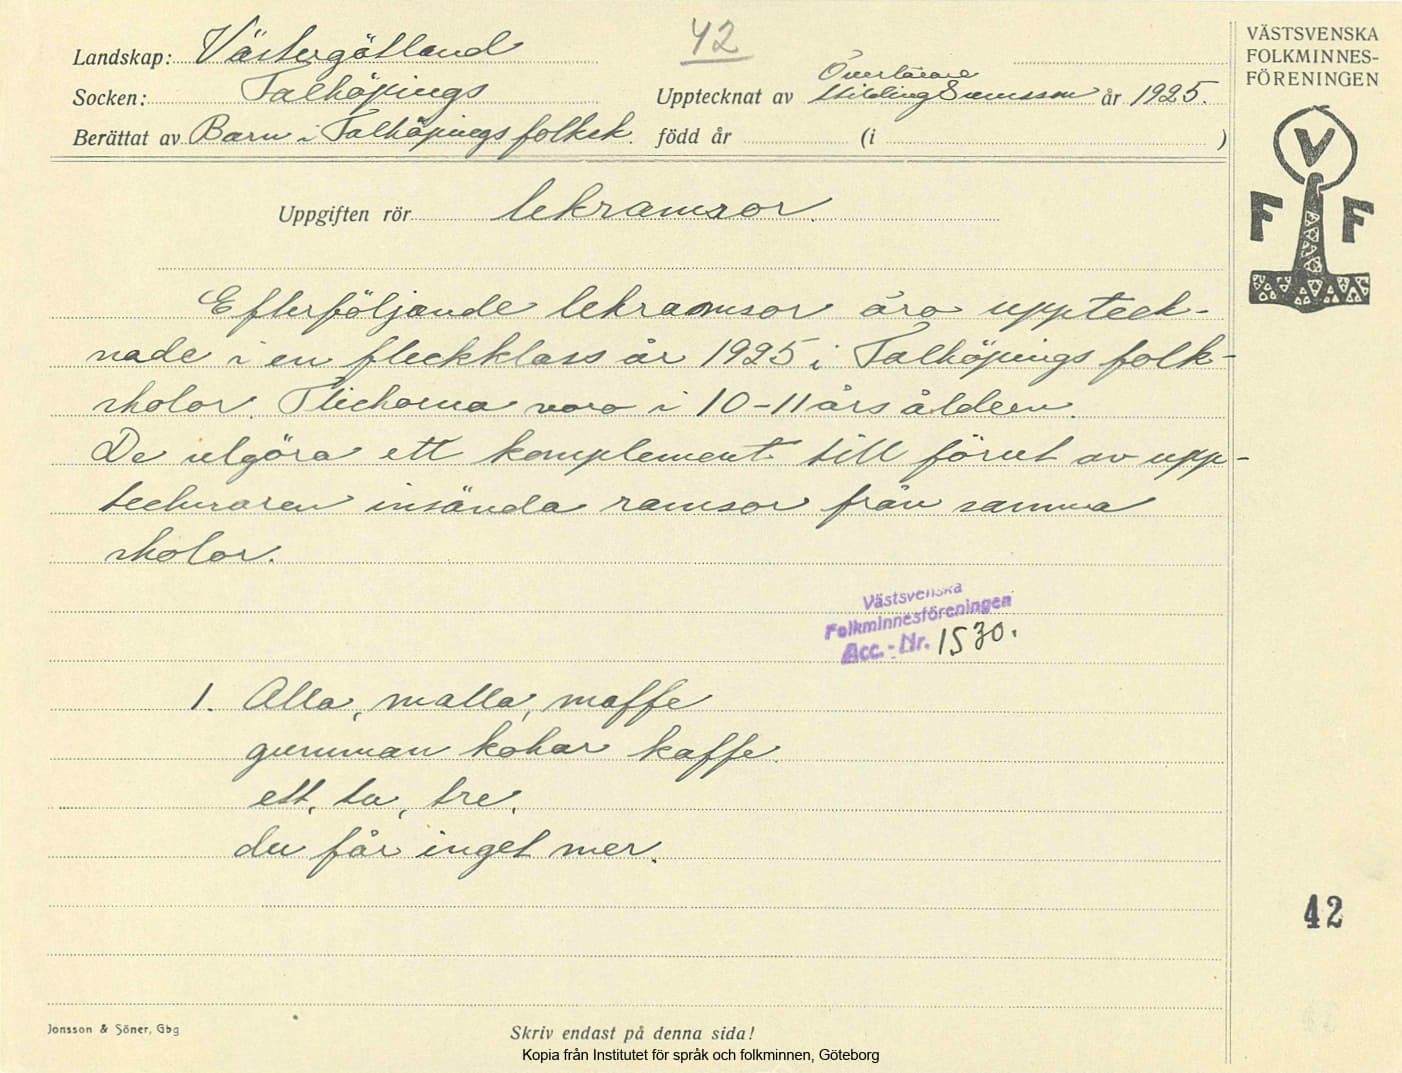 42
Landskap: Västergötland
Socken: Falköpings
Överlärare
Upptecknat av Hilding Svensson år 1925.
Berättat av Barn i Falköpings folksk. född år (i )
VÄSTSVENSKA
FOLKMINNES-
FÖRENINGEN
V
F F
Uppgiften rör lekramsor.
Efterföljande lekramsor äro uppteck-
nade i en flickklass år 1925 i Falköpings folk-
skolor. Flickorna voro i 10-11 års åldern.
De utgöra ett komplement till förut av upp-
tecknaren insända ramsor från samma
skolor.
Västsvenska
Folkminnesföreningen
Acc.-Nr. 1530.
1. Alla, malla, maffe
gumman kokar kaffe.
ett, tu, tre,
du får inget mer.
42
Jonsson & Söner, Gbg
Skriv endast på denna sida!
Kopia från Institutet för språk och folkminnen, Göteborg